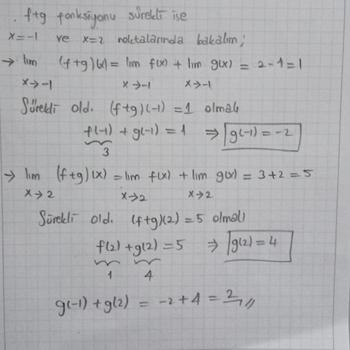 . f+g fonksiyonu sürekli ise
x=-1 ve x=2 noktalarında bakalım;
→ lim (f+g)(x) = lim f(x) + lim g(x) = 2-1=1
x→-1 x→-1 x→-1
Sürekli old. (f+g)(-1)=1 olmalı
f(-1) + g(-1) = 1 ⇒ g(-1) = -2
3
→ lim (f+g)(x) = lim f(x) + lim g(x) = 3+2=5
x→2 x→2 x→2
Sürekli old. (f+g)(2)=5 olmalı
f(2) + g(2) = 5 ⇒ g(2) = 4
1 4
g(-1) + g(2) = -2+4 = 2,,